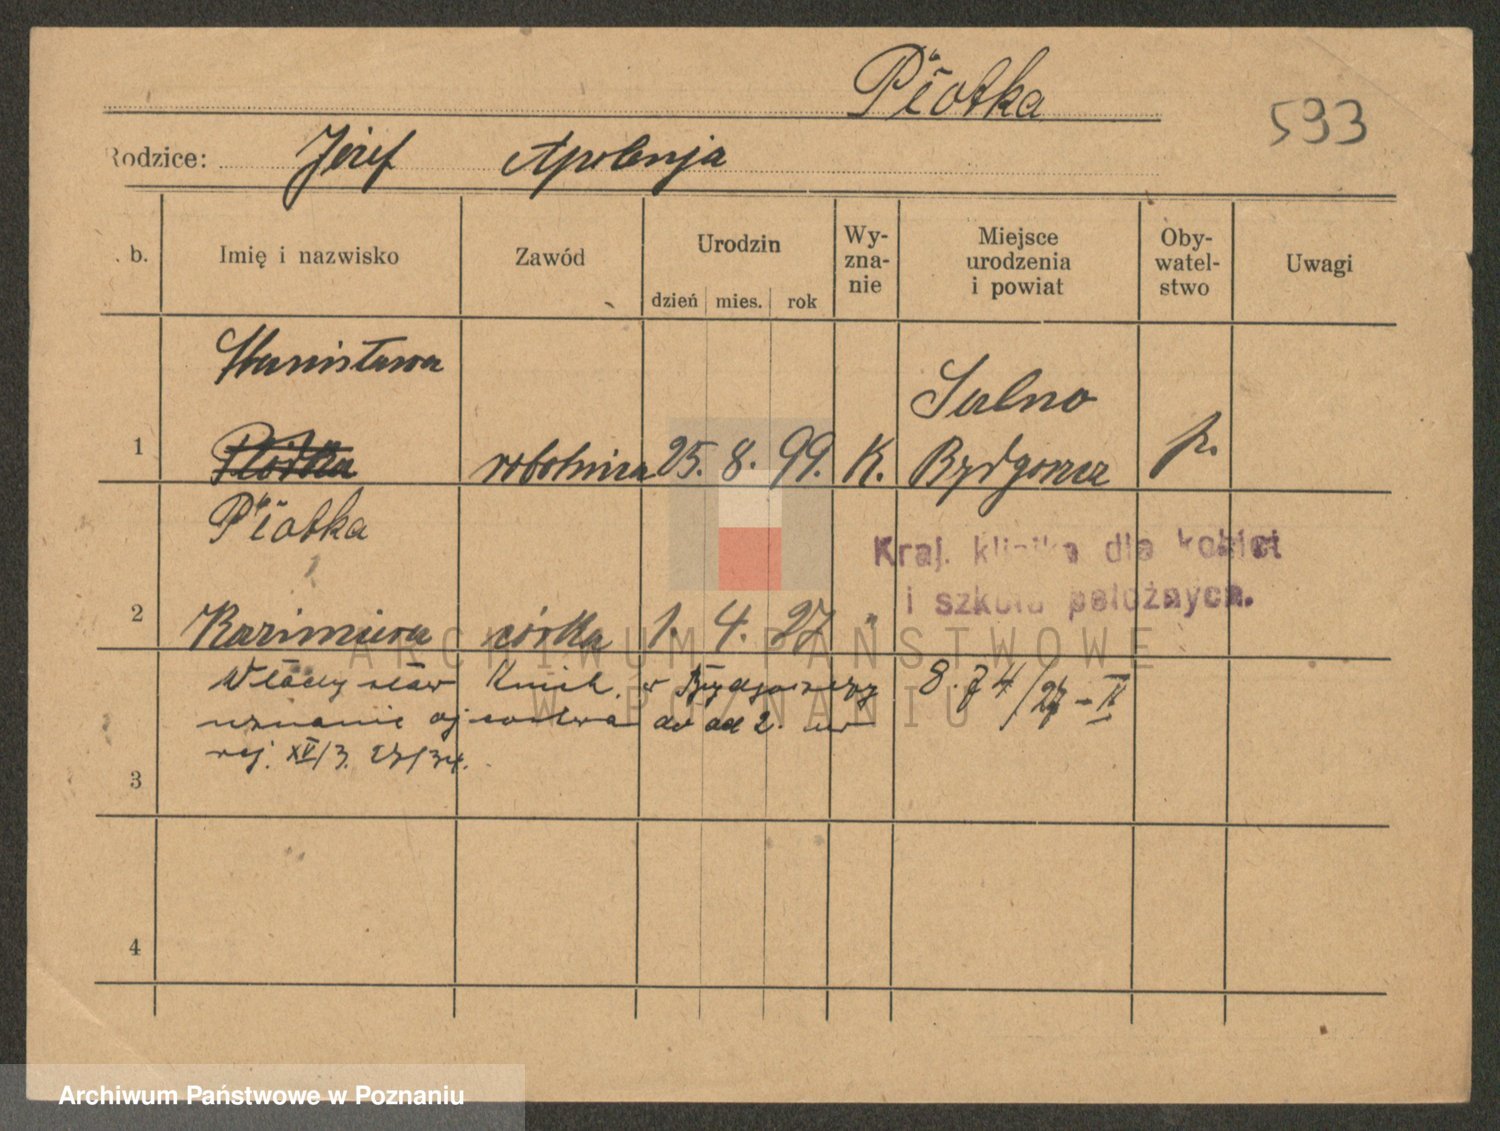 Piotka
593
Rodzice: Józef Apolonja
. b. Imię i nazwisko Zawód Urodzin dzień mies. rok Wy-zna-nie Miejsce urodzenia i powiat Oby-watel-stwo Uwagi
Stanisława
Salno
1 Płotka robotnica 25. 8. 99. K. Bydgoszcz p.
Piotka
Kraj. klinika dla kobiet
i szkoła położnych.
2 Kazimiera córka 1. 4. 27 "
ARCHIWUM PAŃSTWOWE
W POZNANIU
Władysław w Bydgoszczy 8. 4/27 - II
uznanie ojcostwa do ad 2.
rej. XV/3. 27/34.
3
4
Archiwum Państwowe w Poznaniu